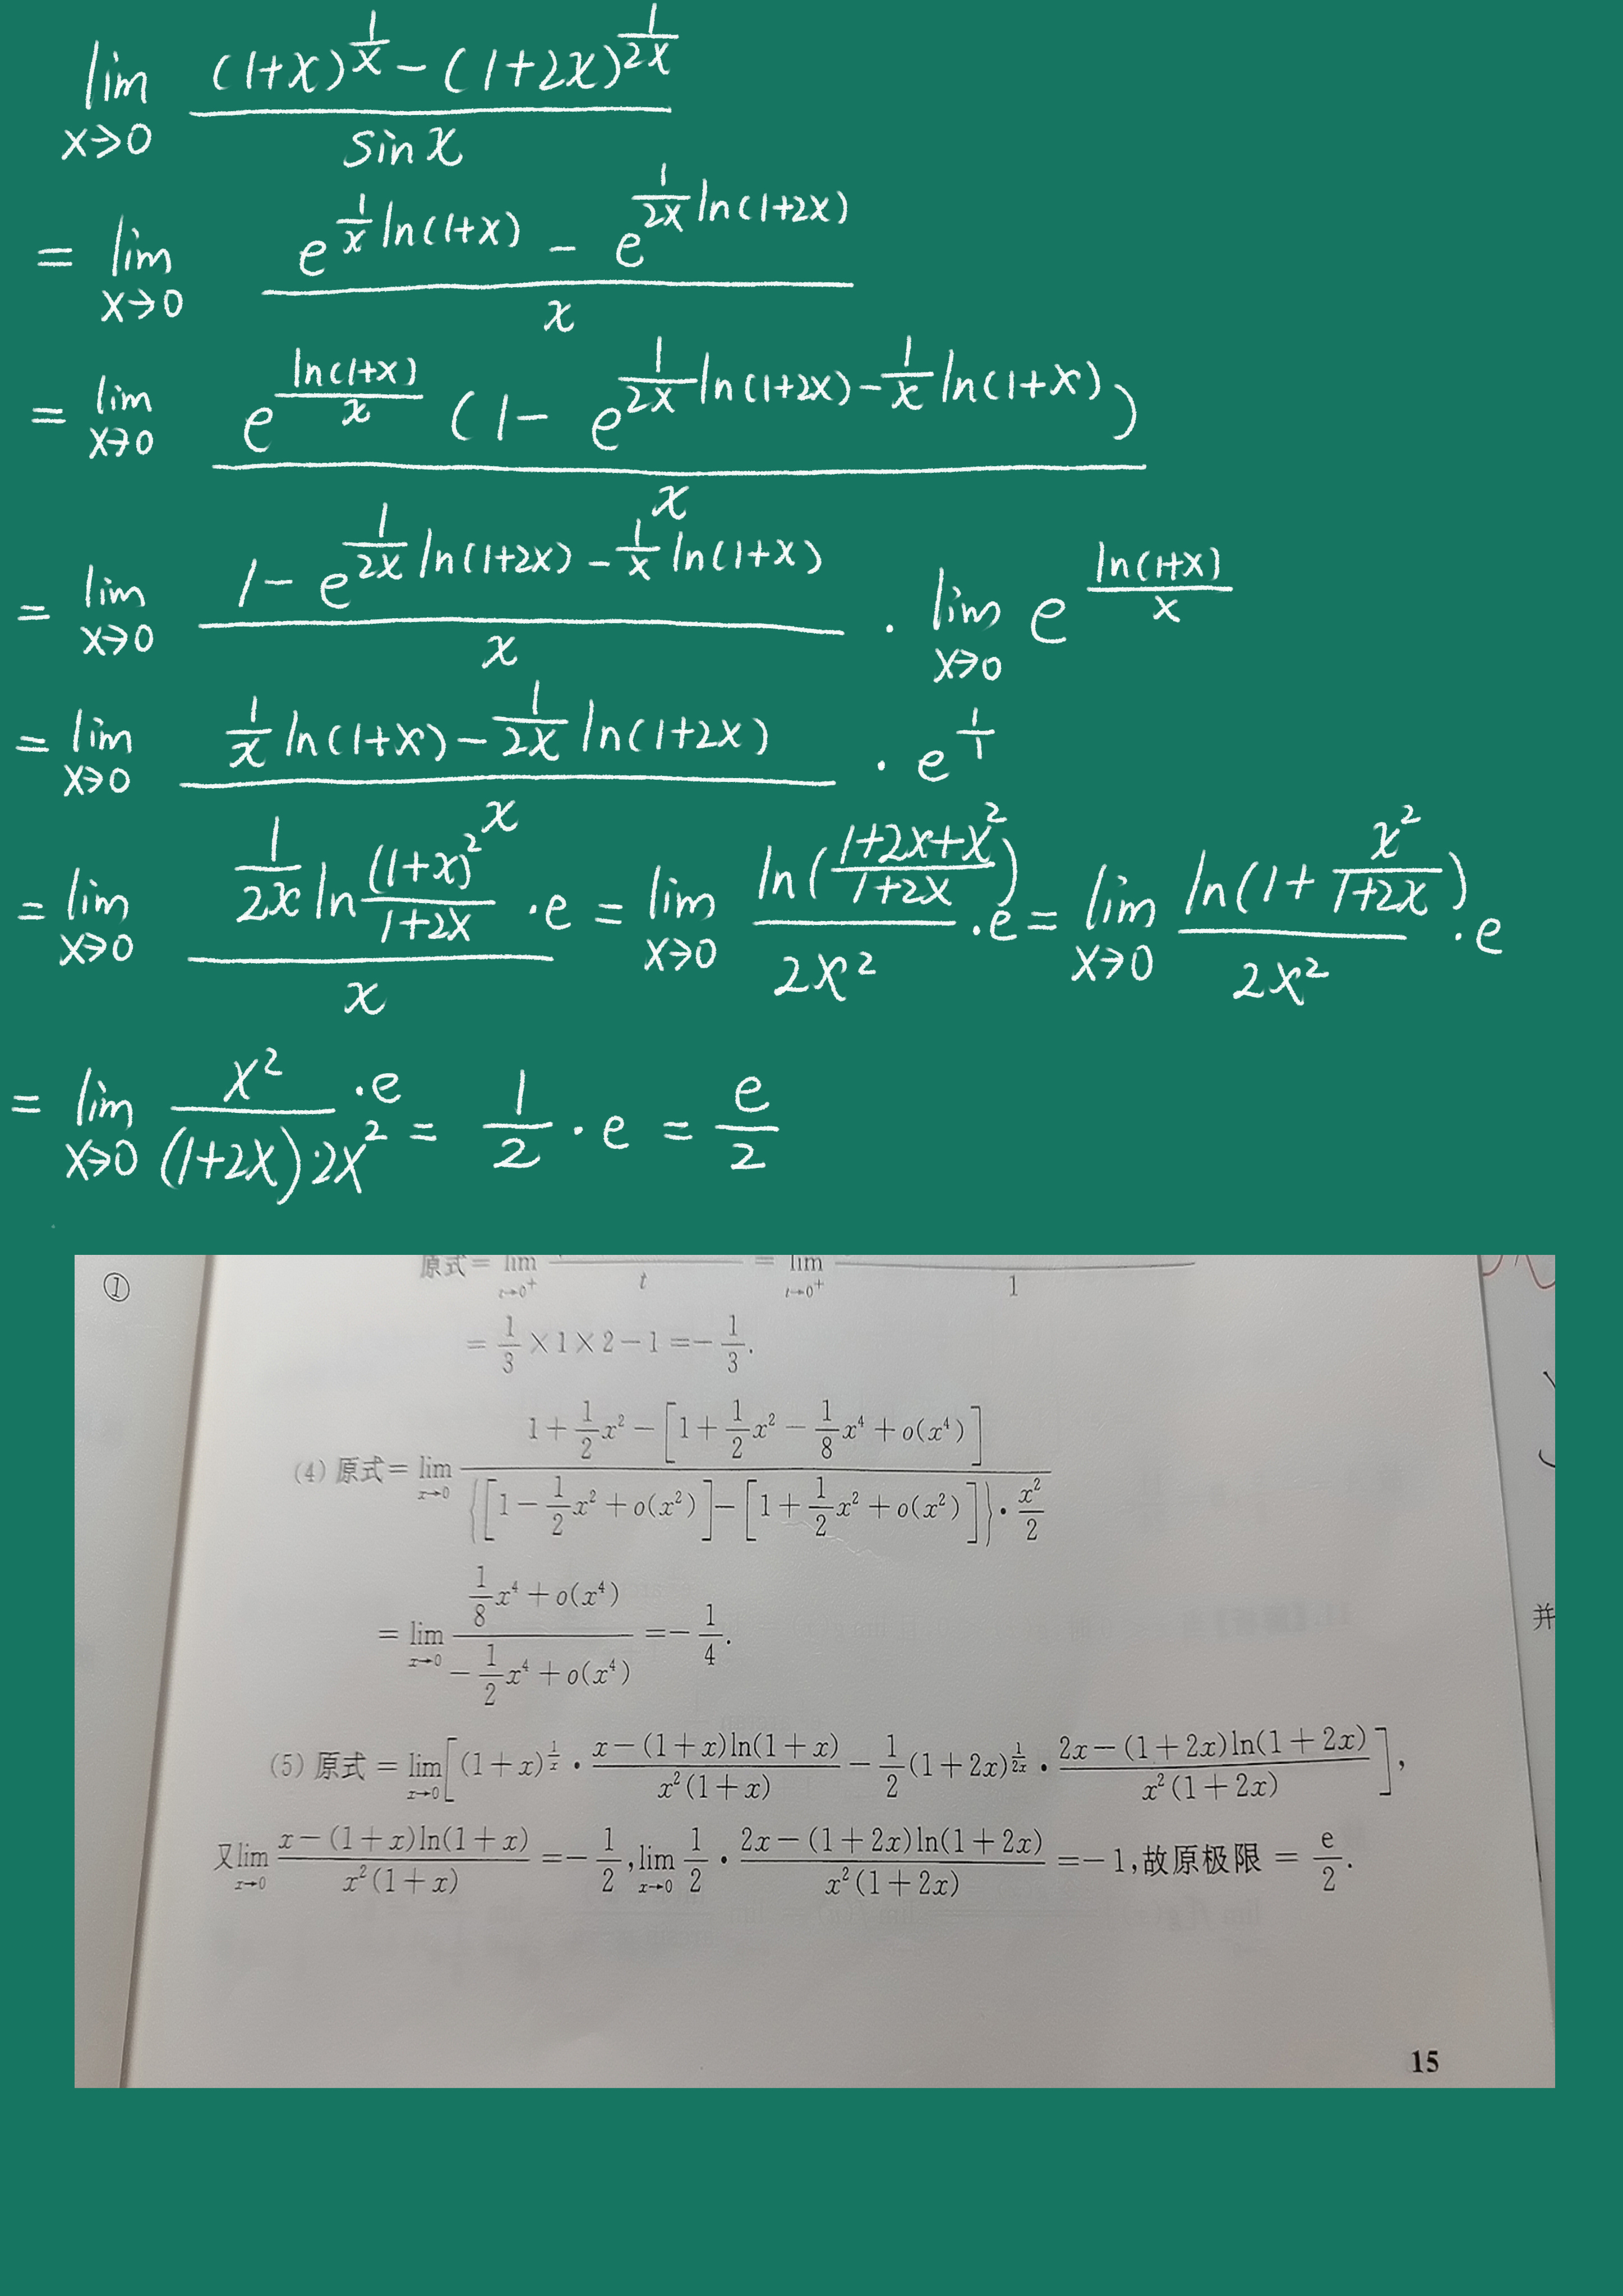 lim x→0 ((1+x)^(1/x) - (1+2x)^(1/2x)) / sin x
= lim x→0 (e^(1/x ln(1+x)) - e^(1/2x ln(1+2x))) / x
= lim x→0 e^(ln(1+x)/x) (1 - e^(1/2x ln(1+2x) - 1/x ln(1+x))) / x
= lim x→0 (1 - e^(1/2x ln(1+2x) - 1/x ln(1+x))) / x · lim x→0 e^(ln(1+x)/x)
= lim x→0 (1/x ln(1+x) - 1/2x ln(1+2x)) / x · e^(1/1)
= lim x→0 (1/2x ln (1+x)²/(1+2x)) / x · e = lim x→0 ln((1+2x+x²)/(1+2x)) / 2x² · e = lim x→0 ln(1 + x²/(1+2x)) / 2x² · e
= lim x→0 x² / ((1+2x)·2x²) · e = 1/2 · e = e/2
① 原式 = lim t→0⁺ / t = lim t→0⁺ / 1
= 1/3 × 1 × 2 - 1 = - 1/3.
(4) 原式 = lim x→0 (1 + 1/2 x² - [1 + 1/2 x² - 1/8 x⁴ + o(x⁴)]) / ({[1 - 1/2 x² + o(x²)] - [1 + 1/2 x² + o(x²)]} · x²/2)
= lim x→0 (1/8 x⁴ + o(x⁴)) / (- 1/2 x⁴ + o(x⁴)) = - 1/4.
(5) 原式 = lim x→0 [(1+x)^(1/x) · (x-(1+x)ln(1+x)) / (x²(1+x)) - 1/2 (1+2x)^(1/2x) · (2x-(1+2x)ln(1+2x)) / (x²(1+2x))],
又 lim x→0 (x-(1+x)ln(1+x)) / (x²(1+x)) = - 1/2, lim x→0 1/2 · (2x-(1+2x)ln(1+2x)) / (x²(1+2x)) = -1, 故原极限 = e/2.
并
15